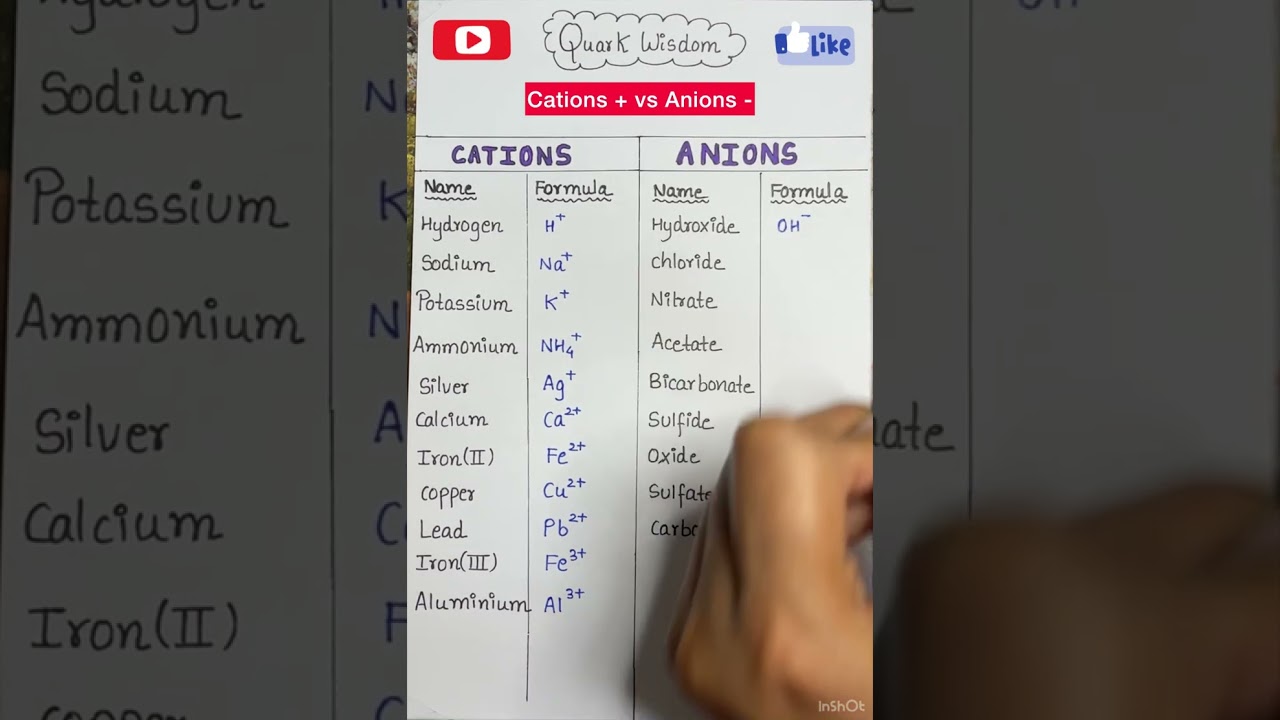 Quark Wisdom
Like
Cations + vs Anions -
CATIONS ANIONS
Name Formula Name Formula
Hydrogen H⁺ Hydroxide OH⁻
Sodium Na⁺ chloride
Potassium K⁺ Nitrate
Ammonium NH₄⁺ Acetate
Silver Ag⁺ Bicarbonate
Calcium Ca²⁺ Sulfide
Iron(II) Fe²⁺ Oxide
copper Cu²⁺ Sulfate
Lead Pb²⁺
Iron(III) Fe³⁺
Aluminium Al³⁺
InShOt
Sodium
Potassium
Ammonium
Silver
Calcium
Iron(II)